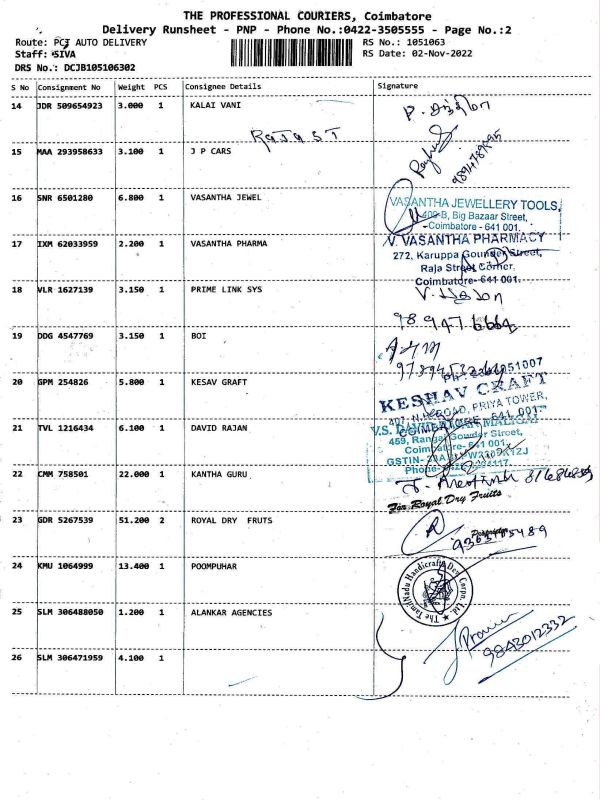 THE PROFESSIONAL COURIERS, Coimbatore
Delivery Runsheet - PNP - Phone No.:0422-3505555 - Page No.:2
Route: PCJ AUTO DELIVERY
RS No.: 1051063
Staff: SIVA
RS Date: 02-Nov-2022
DRS No.: DCJB105106302
S No Consignment No Weight PCS Consignee Details Signature
14 JDR 509654923 3.000 1 KALAI VANI
15 MAA 293958633 3.100 1 J P CARS
16 SNR 6501280 6.800 1 VASANTHA JEWEL
VASANTHA JEWELLERY TOOLS,
409-B, Big Bazaar Street,
Coimbatore - 641 001.
17 IXM 62033959 2.200 1 VASANTHA PHARMA
V. VASANTHA PHARMACY
272, Karuppa Gounder Street,
Raja Street Corner,
Coimbatore- 641 001.
18 VLR 1627139 3.150 1 PRIME LINK SYS
19 DDG 4547769 3.150 1 BOI
20 GPM 254826 5.800 1 KESAV GRAFT
KESHAV CRAFT
PRIYA TOWER,
COIMBATORE - 641 001.
21 TVL 1216434 6.100 1 DAVID RAJAN
459, Rangai Gowder Street,
Coimbatore- 641 001
22 CMM 758501 22.000 1 KANTHA GURU
For Royal Dry Fruits
23 GDR 5267539 51.200 2 ROYAL DRY FRUTS
24 KMU 1064999 13.400 1 POOMPUHAR
The TamilNadu Handicrafts Dev. Corpn. Ltd.
25 SLM 306488050 1.200 1 ALANKAR AGENCIES
9843012332
26 SLM 306471959 4.100 1